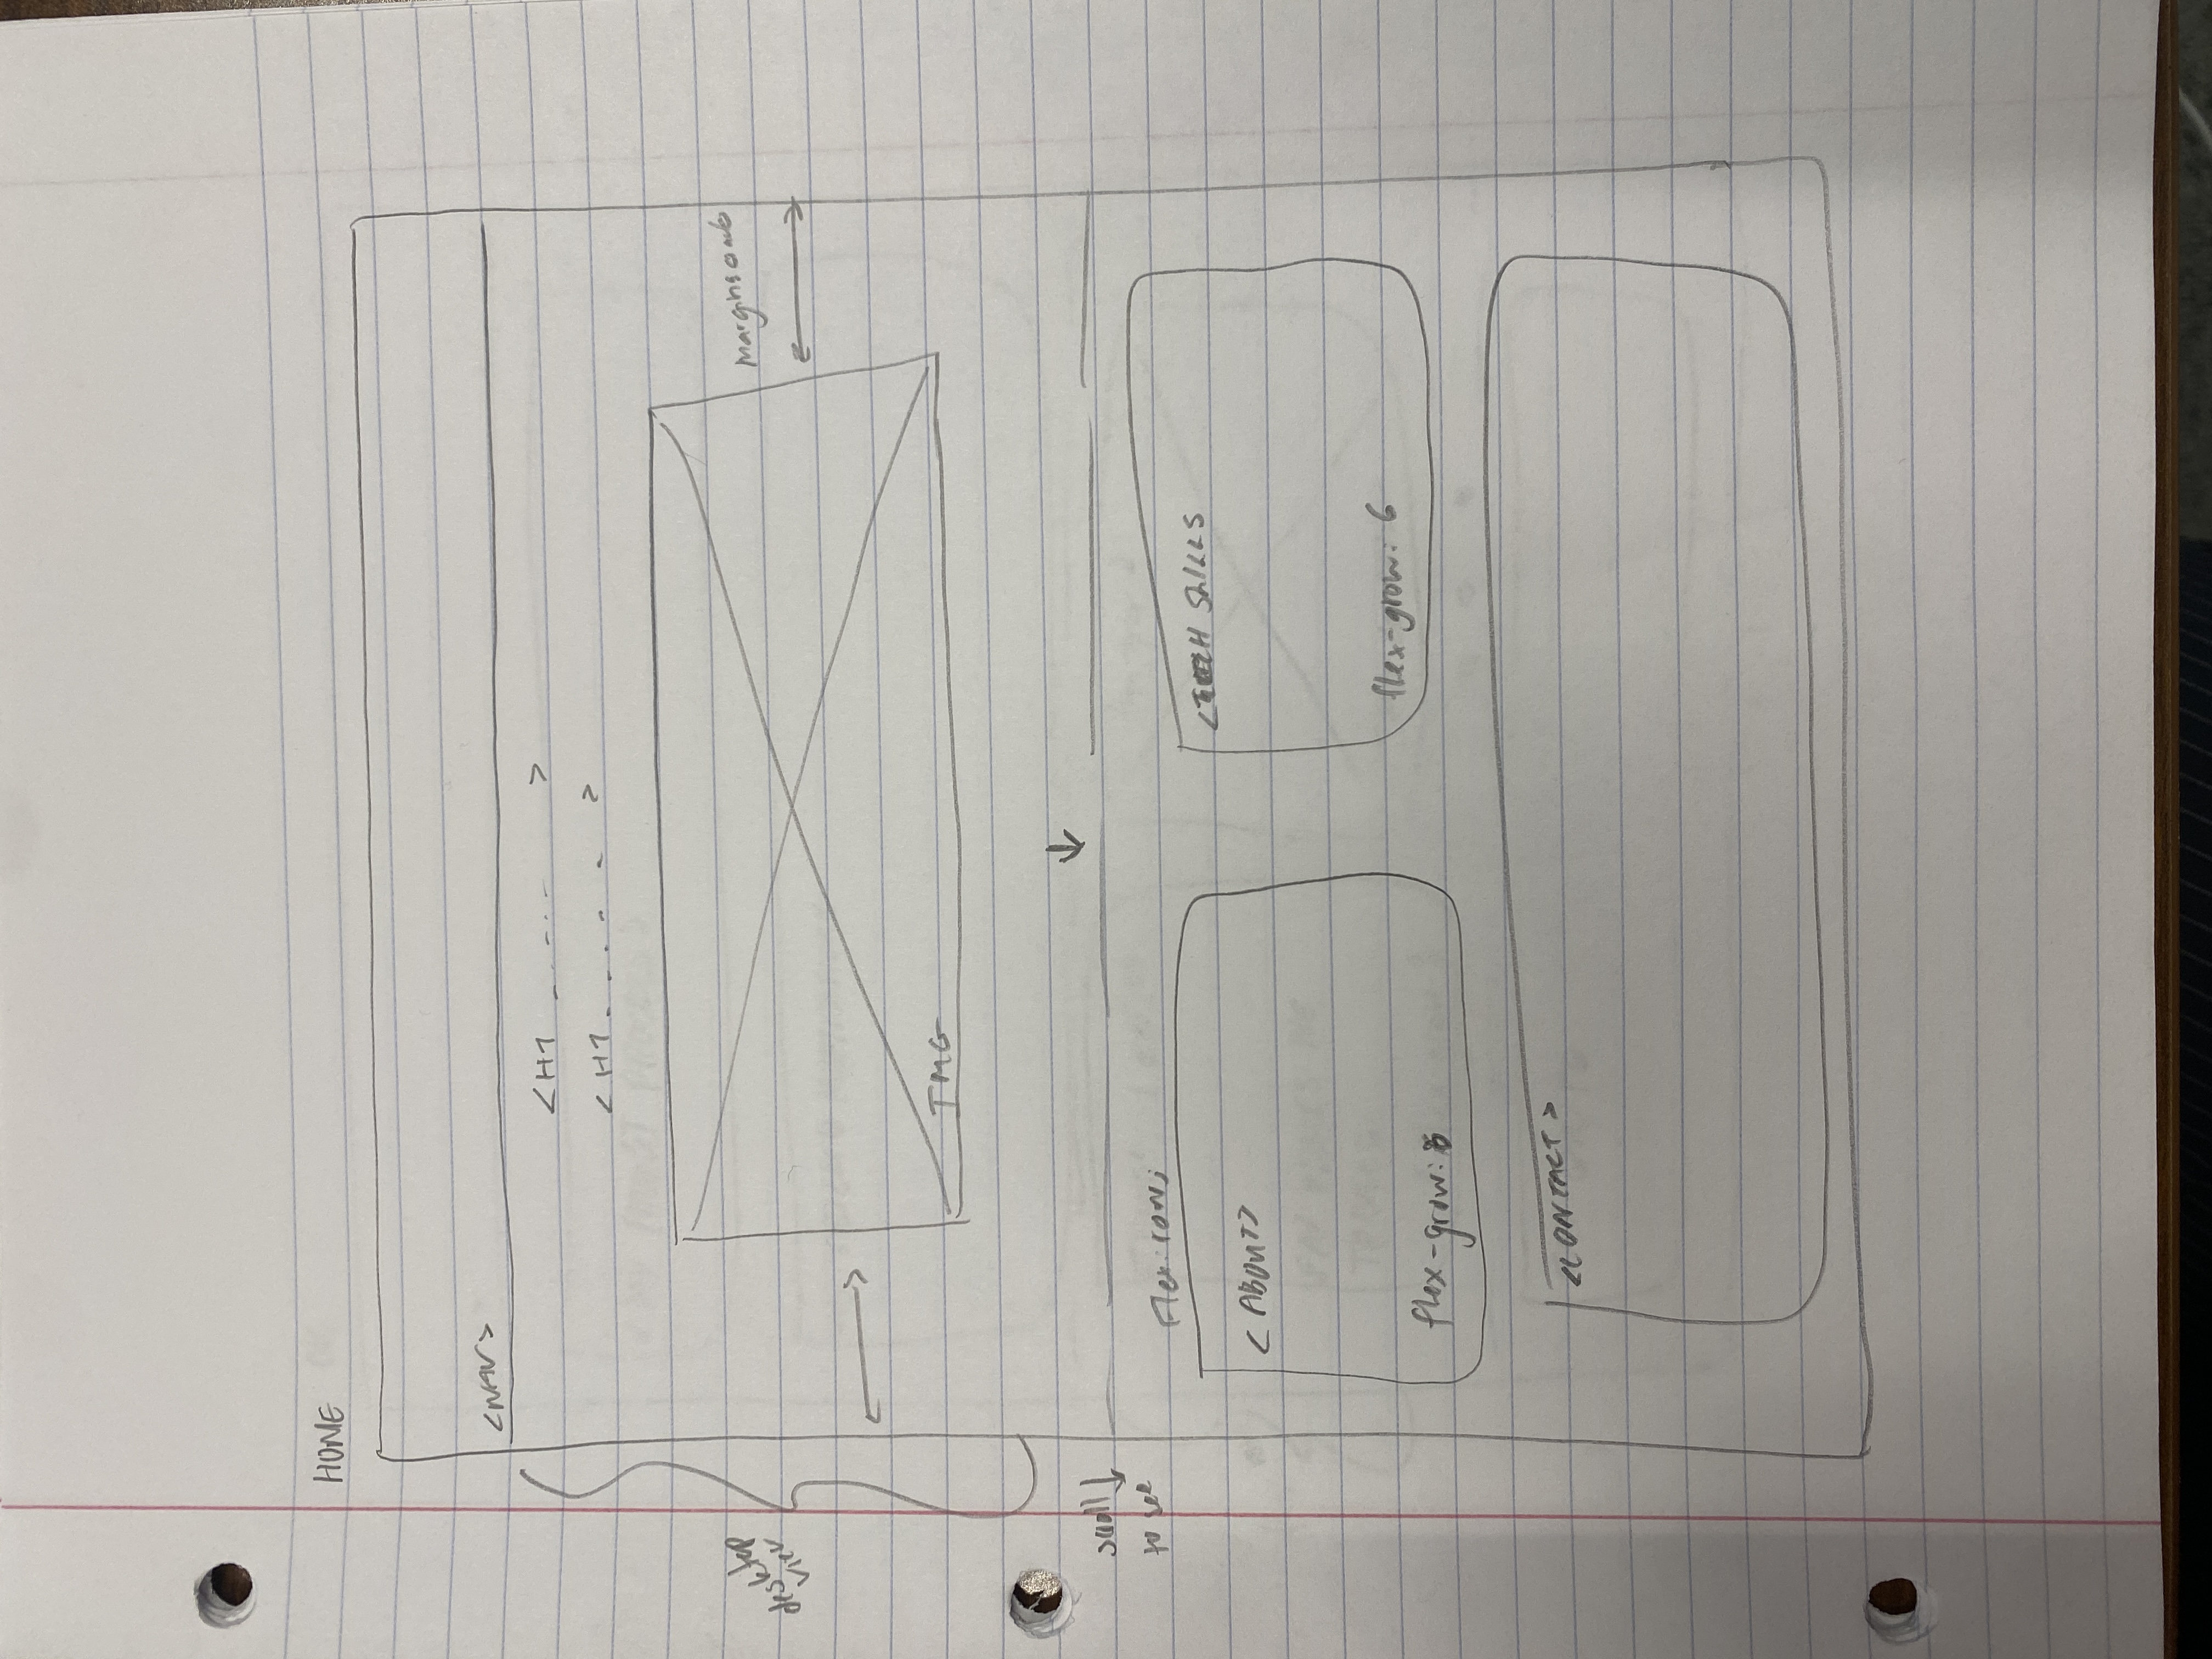 HOME
<NAV>
<H1 _ . - . - >
<H1 . . . . - - >
desktop
view
IMG
scroll ↓
to see
↓
flex: row;
<ABOUT>
flex-grow:
<TECH SKILLS
flex-grow: 6
<CONTACT>